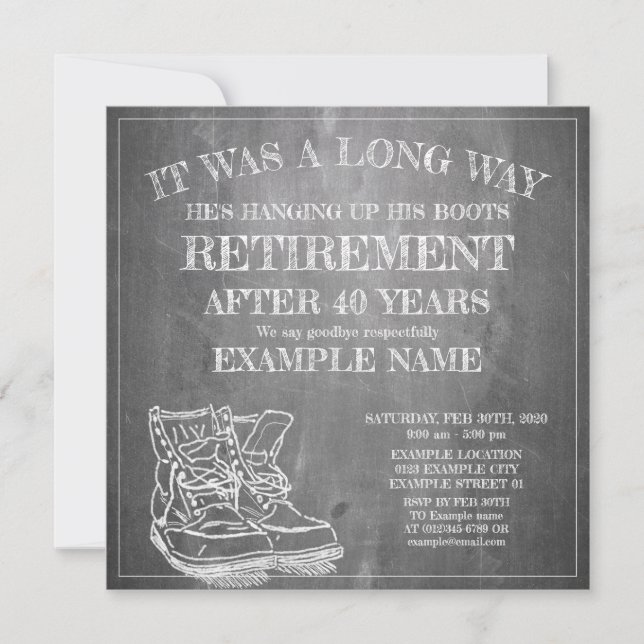 IT WAS A LONG WAY
HE'S HANGING UP HIS BOOTS
RETIREMENT
AFTER 40 YEARS
We say goodbye respectfully
EXAMPLE NAME
SATURDAY, FEB 30TH, 2020
9:00 am - 5:00 pm
EXAMPLE LOCATION
0123 EXAMPLE CITY
EXAMPLE STREET 01
RSVP BY FEB 30TH
TO Example name
AT (012)345-6789 OR
example@email.com